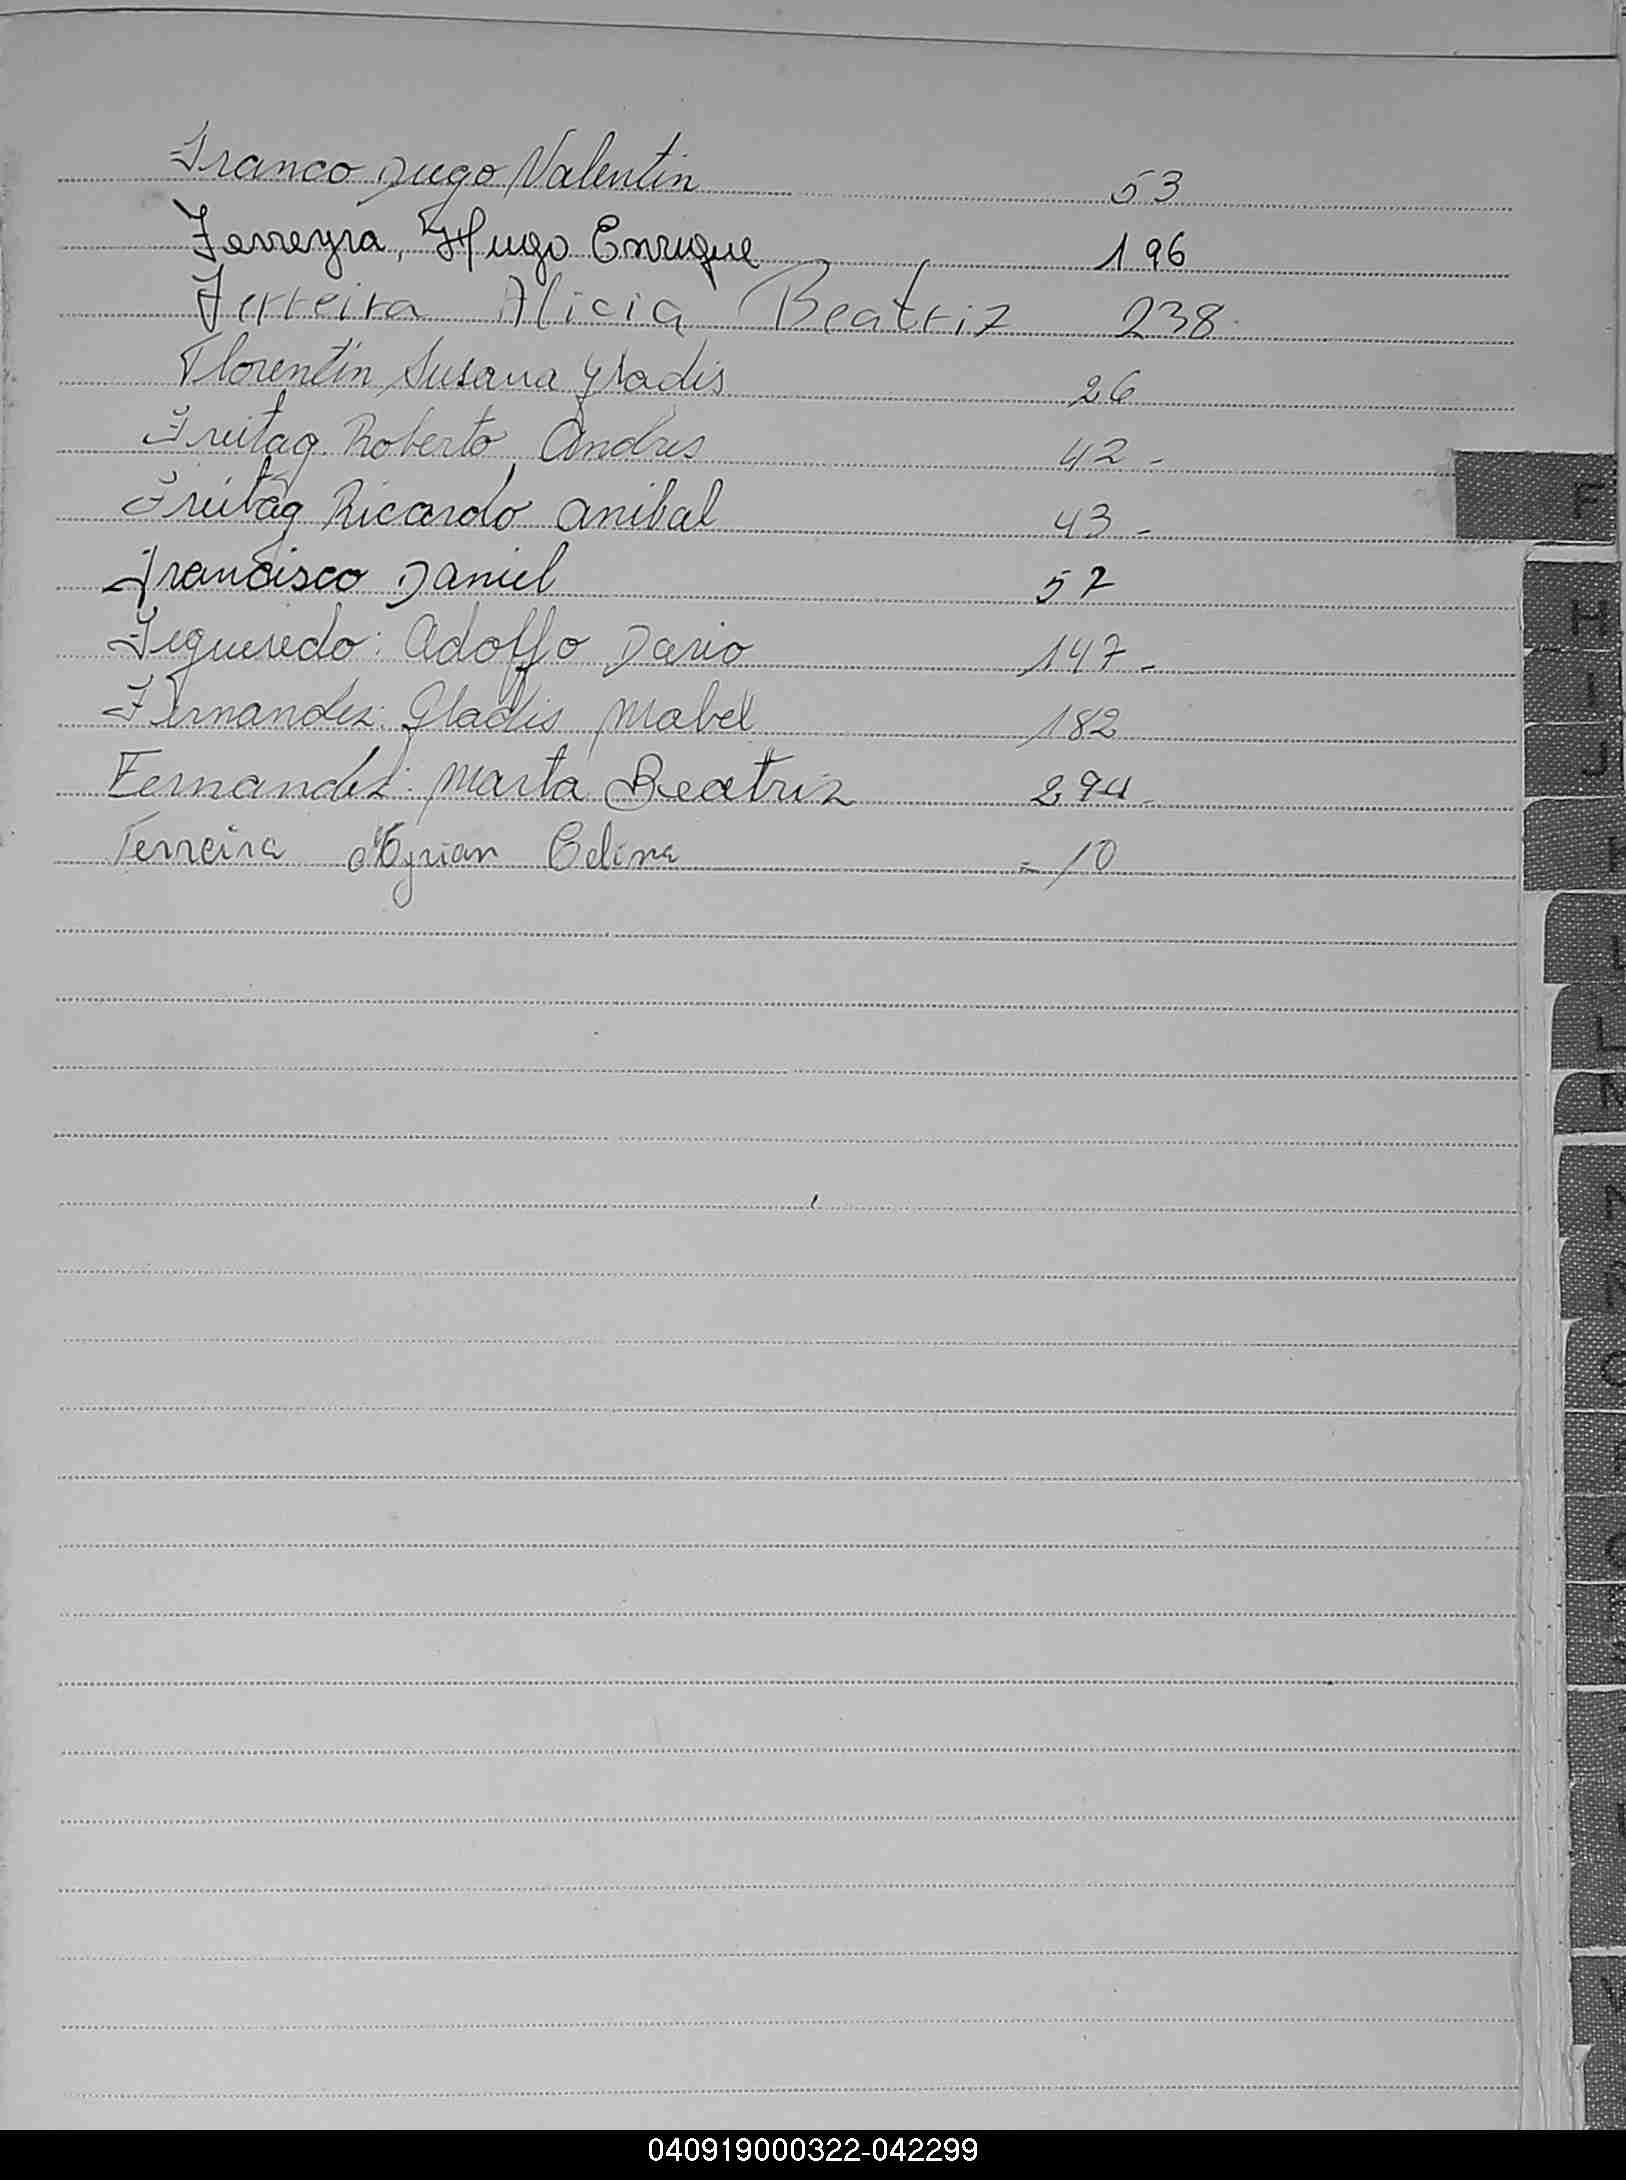 Franco Diego Valentin 53
Ferreyra, Hugo Enrique 196
Ferreira Alicia Beatriz 238
Florentin Susana Gladis 26
Freitag Roberto Andres 42 -
Freitag Ricardo Anibal 43 -
Francisco Daniel 57
Figueredo: Adolfo Dario 147 -
Fernandez: Gladis Mabel 182
Fernandez: Marta Beatriz 294 -
Ferreira Myrian Celina = 10
F
H
I
J
L
L
O
V
040919000322-042299